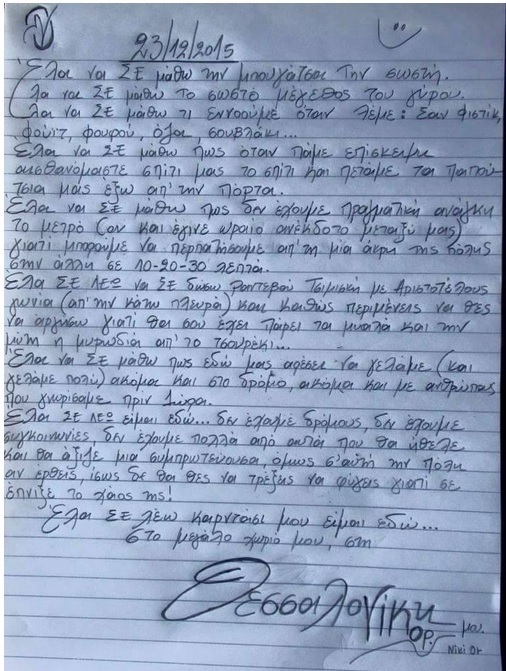 23/12/2015
Έλα να ΣΕ μάθω την μπουγάτσα την σωστή.
Έλα να ΣΕ μάθω το σωστό μέγεθος του γύρου.
Έλα να ΣΕ μάθω τι εννοούμε όταν λέμε: Σαν φιστίκ,
φούιτ, φουρού, όλα σουβλάκι...
Έλα να ΣΕ μάθω πως όταν πάμε επίσκεψη
αισθανόμαστε σπίτι μας το σπίτι και πετάμε τα παπού-
τσια μας έξω απ' την πόρτα.
Έλα να ΣΕ μάθω πως δεν έχουμε πραγματική ανάγκη
το μετρό (αν και έγινε ωραίο ανέκδοτο μεταξύ μας)
γιατί μπορούμε να περπατήσουμε απ' τη μία άκρη της πόλης
στην άλλη σε 10-20-30 λεπτά.
Έλα ΣΕ ΛΕΩ να ΣΕ δώσω ραντεβού Τσιμισκή με Αριστοτέλους
γωνία (απ' την κάτω πλευρά) και καθώς περιμένεις να θες
να αργήσω γιατί θα σου έχει πάρει τα μυαλά και την
μύτη η μυρωδιά απ' το τσουρέκι...
Έλα να ΣΕ μάθω πως εδώ μας αρέσει να γελάμε (και
γελάμε πολύ) ακόμα και στο δρόμο, ακόμα και με ανθρώπους
που γνωρίσαμε πριν 1 ώρα.
Έλα ΣΕ ΛΕΩ είμαι εδώ... δεν έχουμε δρόμους, δεν έχουμε
συγκοινωνίες, δεν έχουμε πολλά από αυτά που θα ήθελε
και θα άξιζε μια συμπρωτεύουσα, όμως σ' αυτή την πόλη
αν έρθεις, ίσως δε θα θες να τρέξεις να φύγεις γιατί σε
έπνιξε το χάος της!
Έλα ΣΕ λέω καρντάσι μου είμαι εδώ...
στο μεγάλο χωριό μου, στη
Θεσσαλονίκη
μου.
ΟΡ.
Niki Or